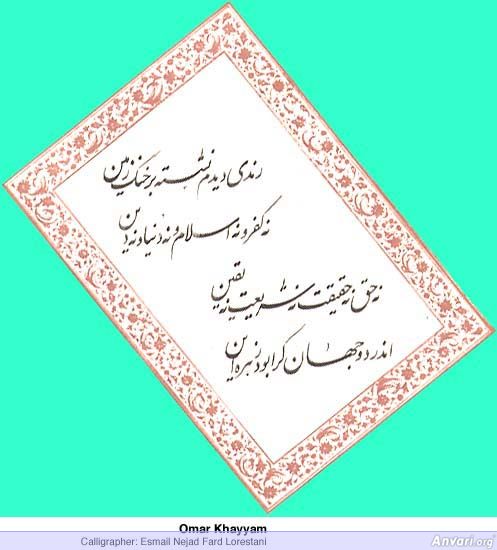 رندی دیدم نشسته بر خنگ زمین
نه کفر و نه اسلام و نه دنیا و نه دین
نه حق نه حقیقت نه شریعت نه یقین
اندر دو جهان کرا بود زهره این
Omar Khayyam
Calligrapher: Esmail Nejad Fard Lorestani
Anvari.org